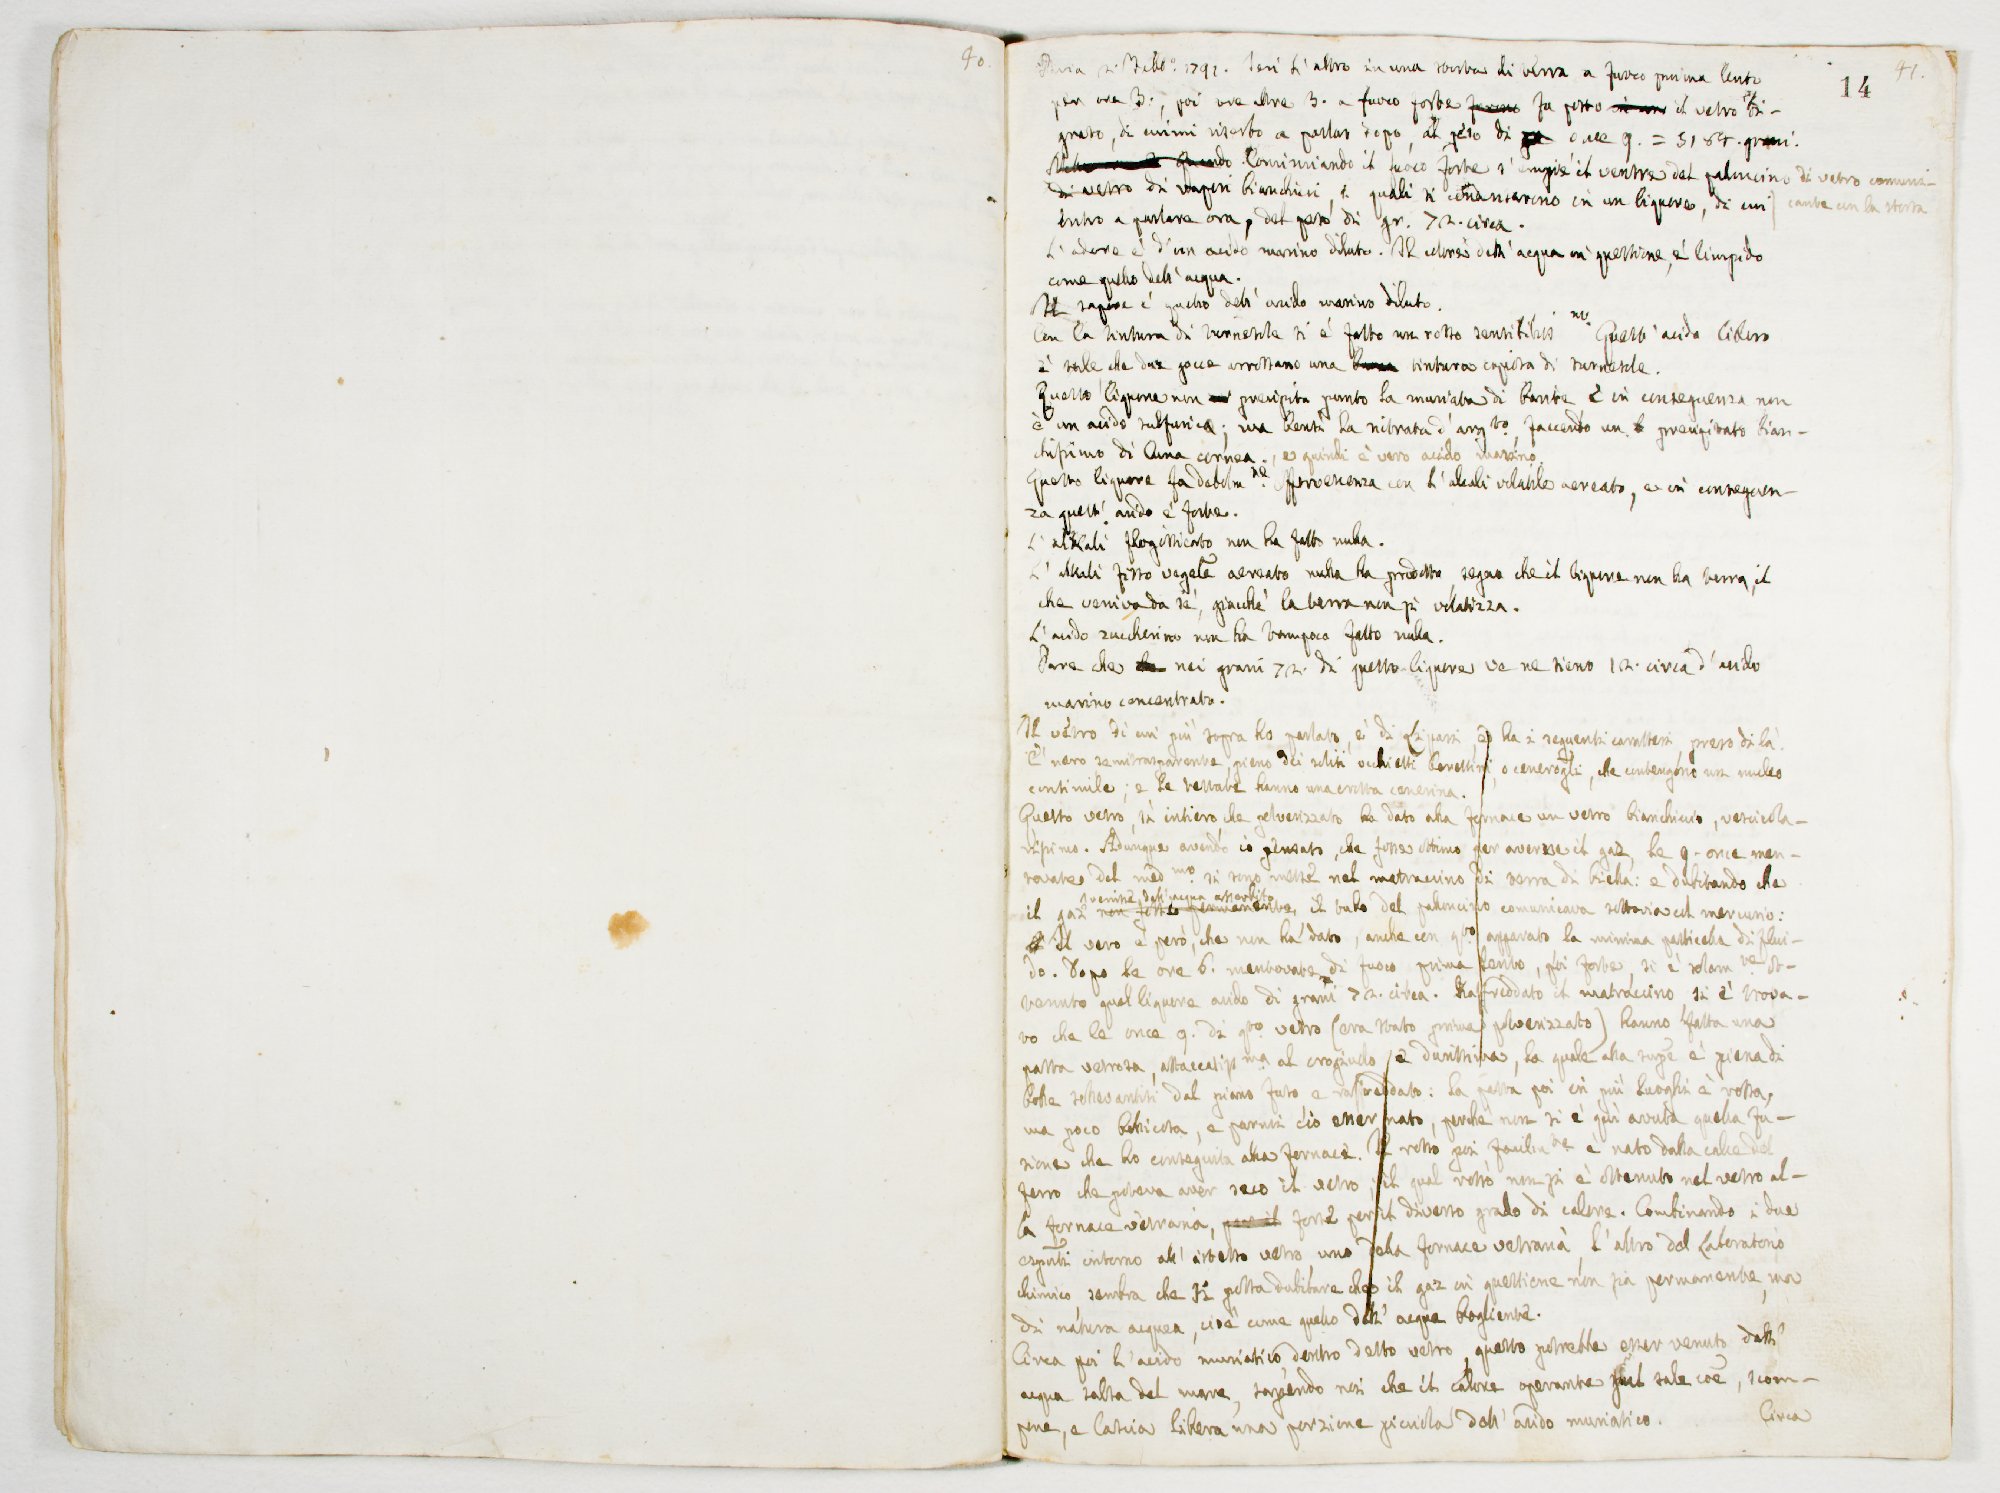 40.
41.
14
Pavia 21 Febb.º 1791. Ieri l'altro in una storta di terra a fuoco prima lento
per ore 3., poi ore altre 3. a fuoco forte fu posto il vetro
di cui mi riserbo a parlar dopo, al peso di once 9. = 5184. grani.
Quando Cominciando il fuoco forte s'empiè il ventre del palloncino di vetro comuni-
di vetro di vapori bianchicci, i quali si condensarono in un liquore, di cui cante con la storta
entro a parlare ora, del peso di gr. 72. circa.
L'odore è d'un acido marino diluto. Il colore dell'acqua in questione, è limpido
come quello dell'acqua.
Il sapore è quello dell'acido marino diluto.
Con la tintura di turnesole si è fatto un rosso Quest'acido libero
è tale che due gocce arrossano una tintura copiosa di turnesole.
Questo liquore non precipita punto la muriata di barite e in conseguenza non
è un acido sulfurico; ma bensì la nitrata d'arg.to, facendo un precipitato bian-
chissimo di luna cornea, e quindi è vero acido marino.
Questo liquore fa debolm.ne effervescenza con l'alcali volatile aereato, e in conseguen-
za quest'acido è forte.
L'alkali flogisticato non ha fatto nulla.
L'alkali fisso vegetle aereato nulla ha prodotto, segno che il liquore non ha terra, il
che veniva da sé, giacché la terra non si volatizza.
L'acido zuccherino non ha tampoco fatto nulla.
Pare che nei grani 72. di questo liquore ve ne sieno 12. circa d'acido
marino concentrato.
Il vetro di cui più sopra ho parlato, è di Lipari, ed ha i seguenti caratteri, preso di là.
È nero semitrasparente, pieno dei soliti occhietti berettini, o cenerogli, che contengono un nucleo
consimile; e le testate hanno una crosta cenerina.
Questo vetro, sì intiero che polverizzato ha dato alla fornace un vetro bianchiccio, vescicola-
rissimo. Adunque avendo io pensato, che fosse ottimo per averne il gaz, le 9. once men-
tovate del med.mo si sono messe nel matraccino di terra di biella: e dubitando che
venisse dall'acqua assorbito
il gaz non fosse permanente, il tubo del palloncino comunicava sottovia col mercurio:
Il vero è però, che non ha dato, anche con q.to apparato la minima particella di flui-
do. Dopo le ore 6. mentovate di fuoco prima lento, poi forte, si è solam.te ot-
tenuto quel liquore acido di grani 72. circa. Raffreddato il matraccino, si è trova-
to che le once 9. di q.to vetro (era stato prima polverizzato) hanno fatta una
pasta vetrosa, attaccatiss.ma al crogiuolo, e durissima, la quale alla supfe è piena di
bolle sollevantisi dal piano fuso e raffreddato: la pasta poi in più luoghi è rossa,
ma poco bollicosa, e parmi ciò esser nato, perché non si è qui avuta quella fu-
sione che ho conseguita alla fornace. Il rosso poi facilm.te è nato dalla calce del
ferro che poteva aver seco il vetro, il qual rosso non si è ottenuto nel vetro al-
la fornace vetraria, per il forse per il diverso grado di calore. Combinando i due
esperiti intorno all'istesso vetro uno della fornace vetraria l'altro del Laboratorio
chimico, sembra che si possa dubitare che il gaz in questione non sia permanente, ma
di natura acquea, cioè come quello dell'acqua bogliente.
Circa poi l'acido muriatico dentro detto vetro, questo potrebbe esser venuto dall'
acqua salsa del mare, sapendo noi che il calore operante sul sale coe, scom-
pone, e lascia libera una porzione picciola dell'acido muriatico.
Circa